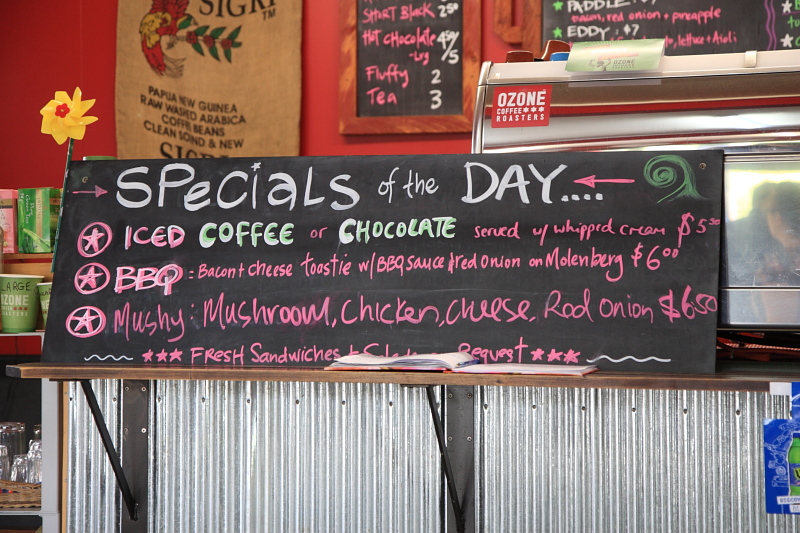 SIGRI TM
PAPUA NEW GUINEA
RAW WASHED ARABICA
COFFEE BEANS
CLEAN SOND & NEW
SIGRI
SHORT BLACK
HOT CHOCOLATE
-lrg 5
Fluffy 2
Tea 3
bacon, red onion + pineapple
EDDY $7
lettuce + Aioli
OZONE
COFFEE★★★
ROASTERS
SPeCiALS of the DAY....
ICED COFFEE or CHOCOLATE served w/ whipped cream $5.50
BBQ : Bacon + cheese toastie w/ BBQ sauce & red onion on Molenberg $6.00
Mushy: Mushroom, Chicken, Cheese, Rod Onion $6.50
★★★ FRESH Sandwiches Request ★★★
LARGE
OZONE